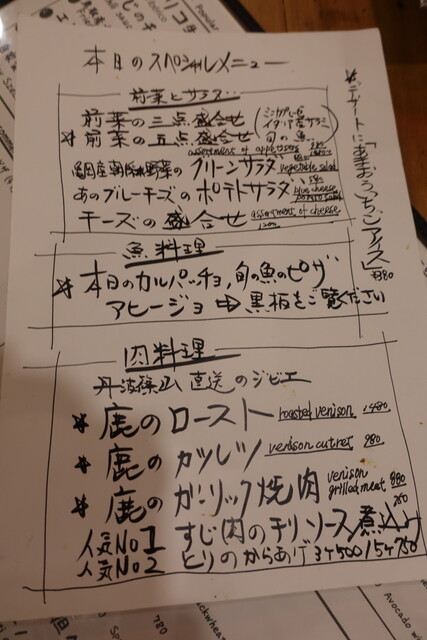 本日のスペシャルメニュー
前菜とサラダ
前菜の三点盛合せ
前菜の五点盛合せ
旬の魚
assortment of appetizers
グリーンサラダ vegetable salad
あのブルーチーズのポテトサラダ blue cheese potato salad
チーズの盛合せ assortment of cheese
魚料理
＊本日のカルパッチョ,旬の魚のピザ
アヒージョ ⇨ 黒板をご覧ください
肉料理
丹波篠山 直送のジビエ
＊鹿のロースト roasted venison 1480
＊鹿のカツレツ venison cutret 980
＊鹿のガーリック焼肉 venison grilled meat 880
人気No1 すじ肉のチリソース煮込 750
人気No2 とりのからあげ 3ケ500/5ケ750
＊デザートに「あまおういちごアイス」
¥380